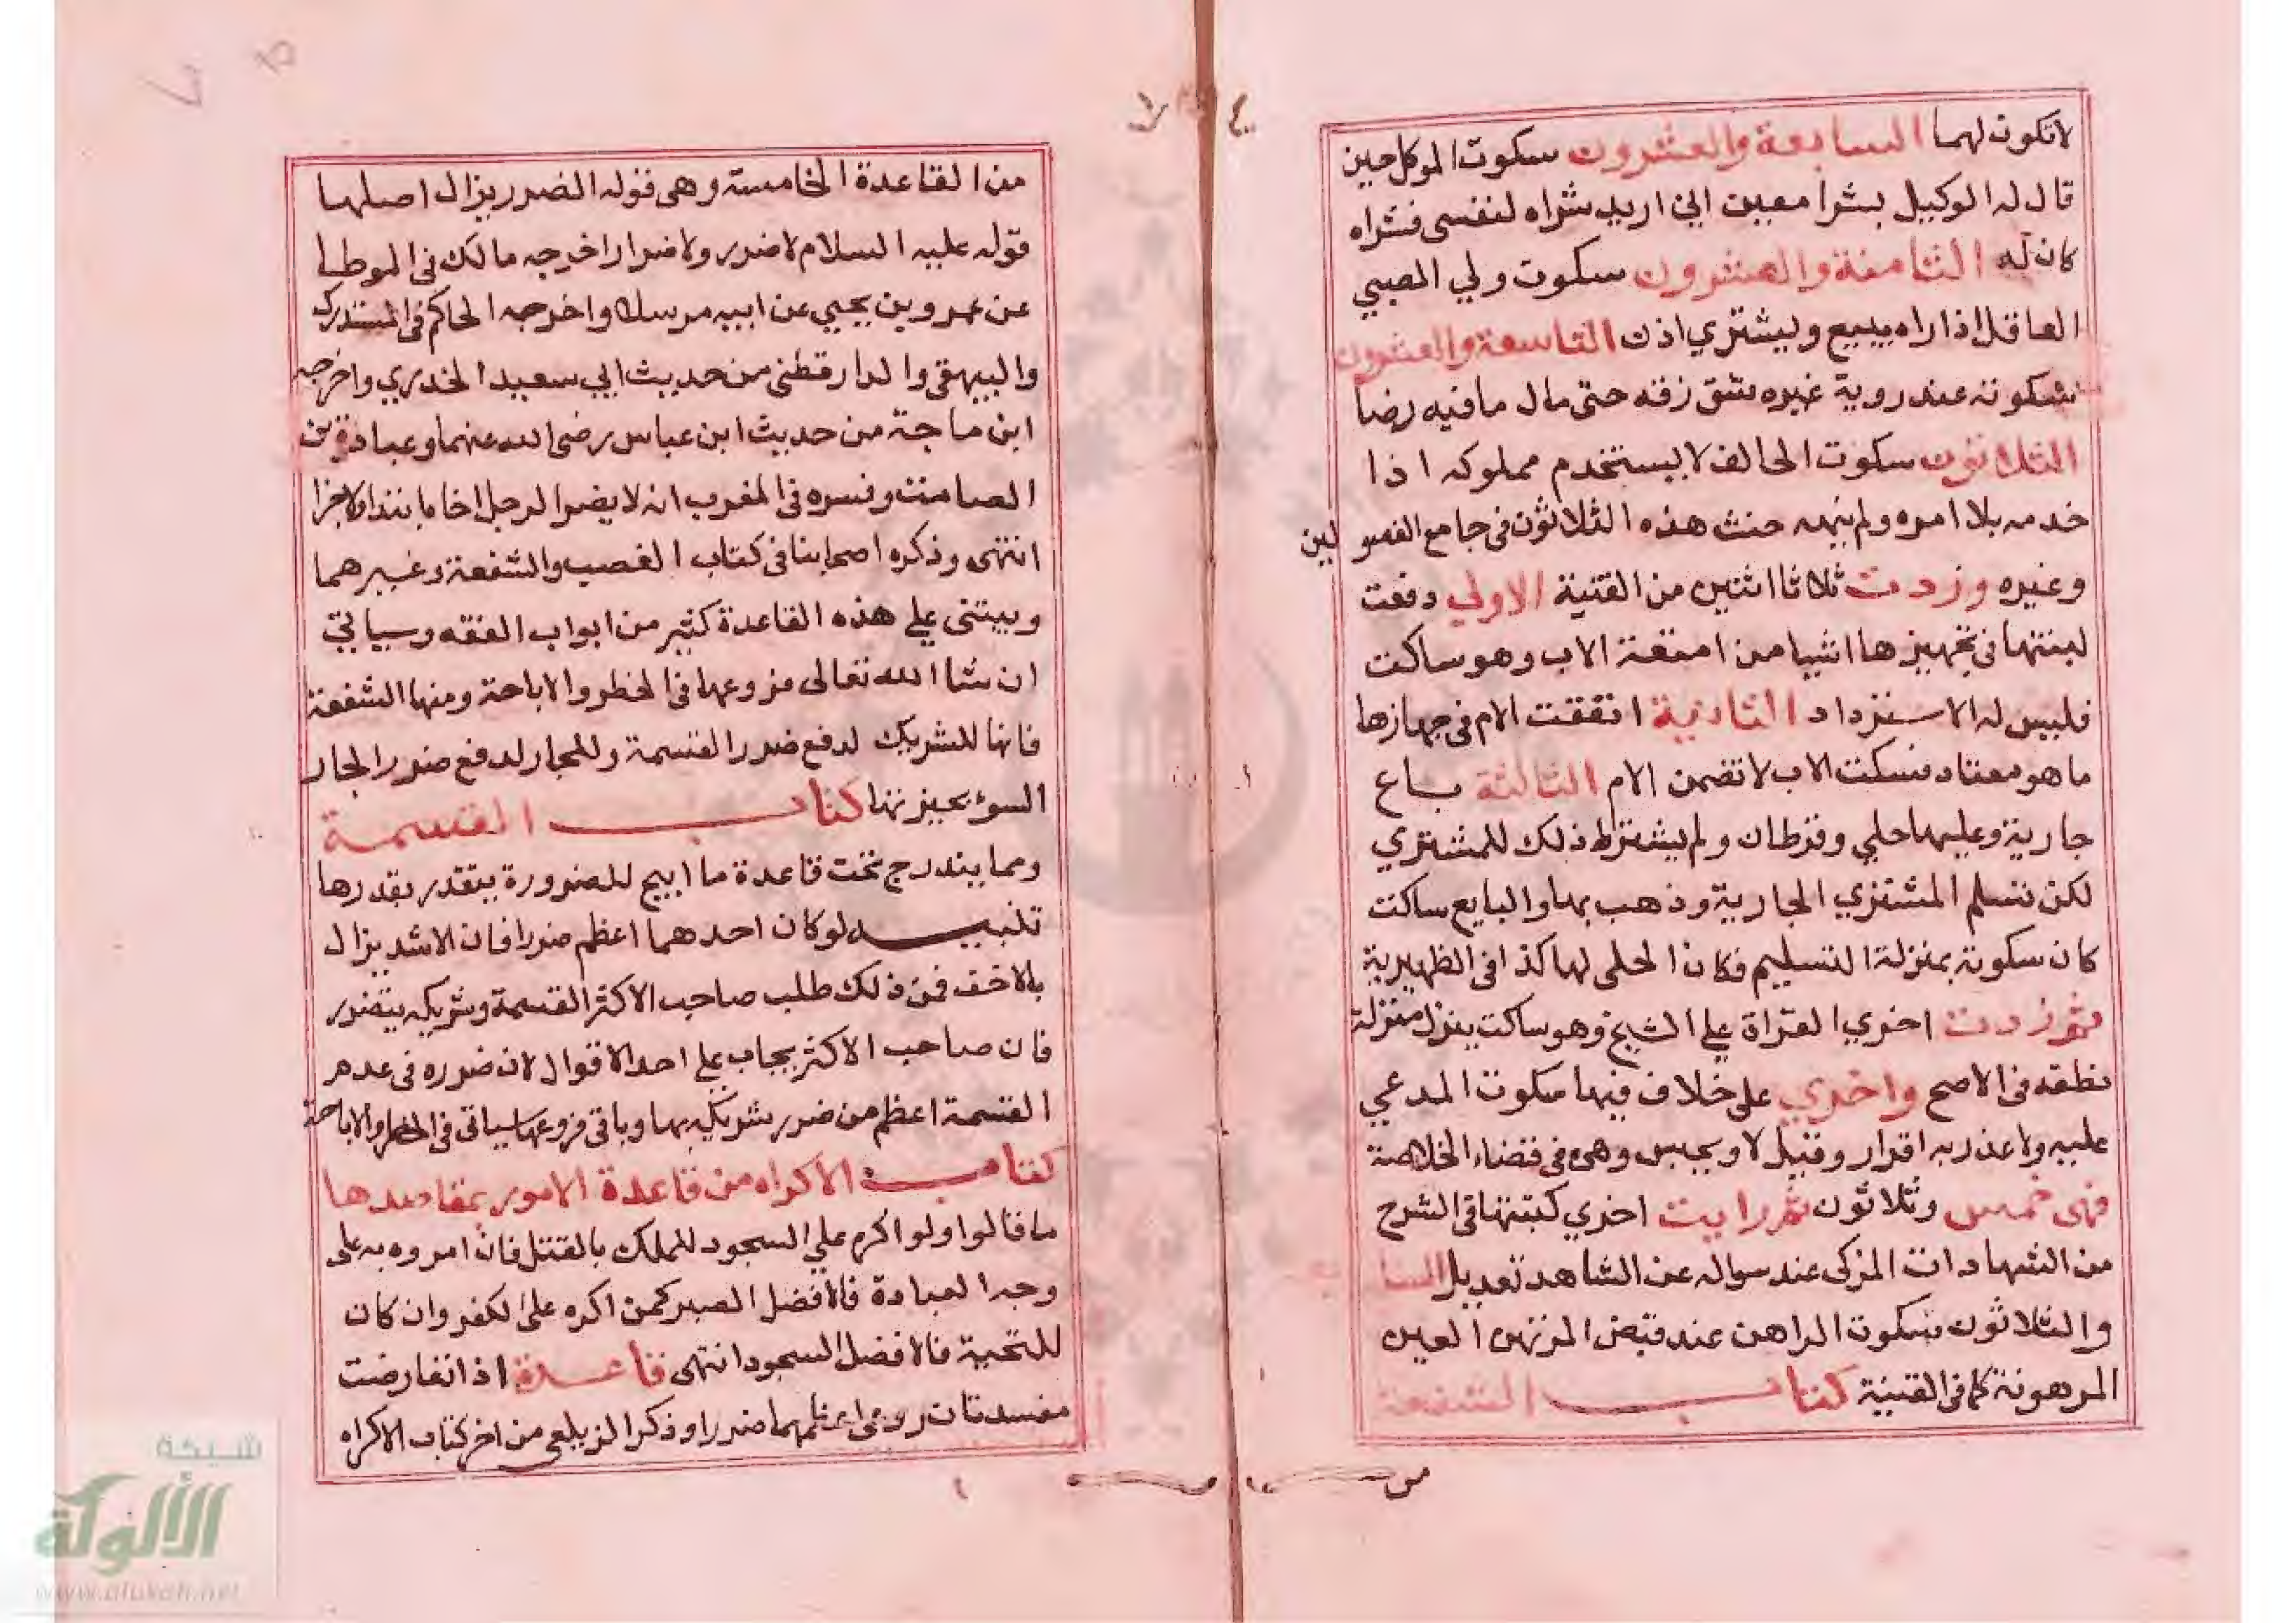 لاتكون لهما السابعة والعشرون سكوت الموكل حين
قال له الوكيل بشرا معين اني اريد شراه لنفسى فشراه
كان له الثامنة والعشرون سكوت ولي الصبي
العاقل اذا راه يبيع ويشتري اذن التاسعة والعشرون
سكوته عند روية غيره شق زقه حتى مال مافيه رضا
الثلاثون سكوت الحالف لا يستخدم مملوكه اذا
خدمه بلا امره ولم ينهه حنث هذه الثلاثون فى جامع الفصولين
وغيره وزدت ثلاثا اثنين من القنية الاولي دفعت
لبنتها فى تجهيزها اشيا من امتعة الاب وهو ساكت
فليس له الاسترداد الثانية انفقت الام فى جهازها
ما هو معتاد فسكت الاب لا تضمن الام الثالثة باع
جارية وعليها حلي وقرطان ولم يشترط ذلك للمشتري
لكن تسلم المشتري الجارية وذهب بها والبايع ساكت
كان سكوته بمنزلة التسليم فكان الحلى لها كذا فى الظهيرية
ثم زدت اخري القراة علي الشيخ وهو ساكت ينزل منزلة
نطقه فى الاصح واخري على خلاف فيها سكوت المدعي
عليه ولا عذر به اقرار وقيل لا ويحبس وهى فى قضاء الخلاصة
فهى خمس وثلاثون ثم رايت اخري كتبتها فى الشرح
من الشهادات المزكى عند سواله عن الشاهد تعديل السابع
والثلاثون سكوت الراهن عند قبض المرتهن العين
المرهونة كما فى القنية كتاب الشفعة
من
من القاعدة الخامسة وهى قوله الضرر يزال اصلها
قوله عليه السلام لا ضرر ولا ضرار اخرجه مالك فى الموطا
عن عمرو بن يحيي عن ابيه مرسلا واخرجه الحاكم فى المستدرك
والبيهقى والدارقطنى من حديث ابي سعيد الخدري واخرجه
ابن ماجة من حديث ابن عباس رضى الله عنهما وعبادة بن
الصامت وفسره فى المغرب انه لا يضر الرجل اخاه ابتدا ولا جزا
انتهى وذكره اصحابنا فى كتاب الغصب والشفعة وغيرهما
ويبتنى علي هذه القاعدة كثير من ابواب الفقه وسياتي
ان شا الله تعالى فروعها فى الحظر والاباحة ومنها الشفعة
فانها للشريك لدفع ضرر القسمة وللجار لدفع ضرر الجار
السوء كتاب القسمة
ومما يندرج تحت قاعدة ما ابيح للضرورة يتقدر بقدرها
تنبيه لو كان احدهما اعظم ضررا فان الاشد يزال
بالاخف فمن ذلك طلب صاحب الاكثر القسمة وشريكه يتضرر
فان صاحب الاكثر يجاب علي احد الاقوال لان ضرره فى عدم
القسمة اعظم من ضرر شريكه بها وباقى فروعها سياتى فى الحظر والاباحة
كتاب الاكراه من قاعدة الامور بمقاصدها
ما قالوا ولو اكره علي السجود للملك بالقتل فان امروه به على
وجه العبادة فالافضل الصبر كمن اكره على الكفر وان كان
للتحية فالافضل السجود انتهى قاعدة اذا تعارضت
مفسدتان روعى اعظمهما ضررا وذكر الزيلعى من اخر كتاب الاكراه
شبكة
الألوكة
www.alukah.net